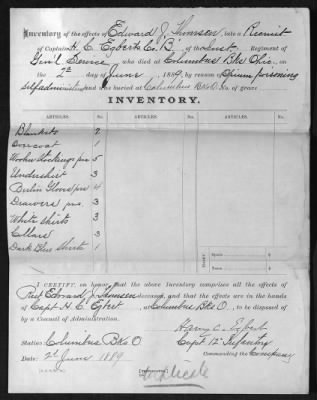 Inventory of the effects of Edward J. Thomsen late a Recruit
of Captain H. C. Egberts Co. "B" of the Inst. Regiment of
Gen'l Service who died at Columbus Bks Ohio, on
the 2d day of June, 1889, by reason of Opium poisoning
self administered and was buried at Columbus Bks O. No. of grave
INVENTORY.
ARTICLES. NO. ARTICLES. NO. ARTICLES. NO.
Blankets 2
Overcoat 1
Woolen Stockings prs 5
Undershirt 3
Berlin Gloves prs 4
Drawers prs. 3
White shirts 3
Collars 3
Dark Blue Shirts 1
Specie
Notes
I CERTIFY, on honor, that the above Inventory comprises all the effects of
Rect Edward J. Thomsen deceased, and that the effects are in the hands
of Capt. H. C. Egbert, at Columbus Bks O., to be disposed of
by a Council of Administration.
Harry C. Egbert
Station: Columbus Bks O Capt 12th Infantry
Date: 2d June, 1889 Commanding the Company
Duplicate